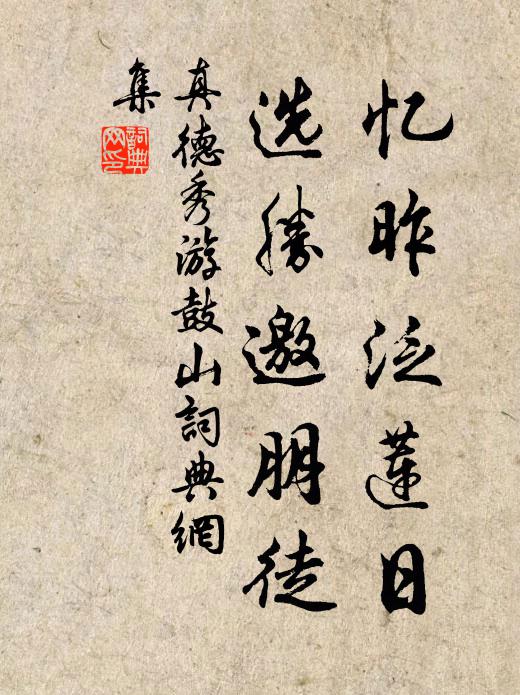 忆昨泛莲日
选胜邀朋徒
真德秀游鼓山詞典網
集
詞典
网印